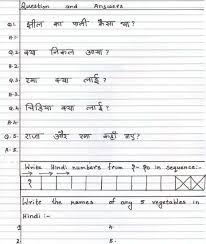 Question and Answers
Q.1- झील का पानी कैसा था?
A.1-
Q.2 क्या निकल आया?
A.2-
Q.3 रमा क्या लाई?
A.3-
Q.4 चिड़िया क्या लाई?
A.4-
Q.5- राजा और रमा कहाँ गए?
A-5.
Write Hindi numbers from १- १० in sequence:-
१
Write the names of any 5 vegetables in
Hindi :-
4.
2. 5.